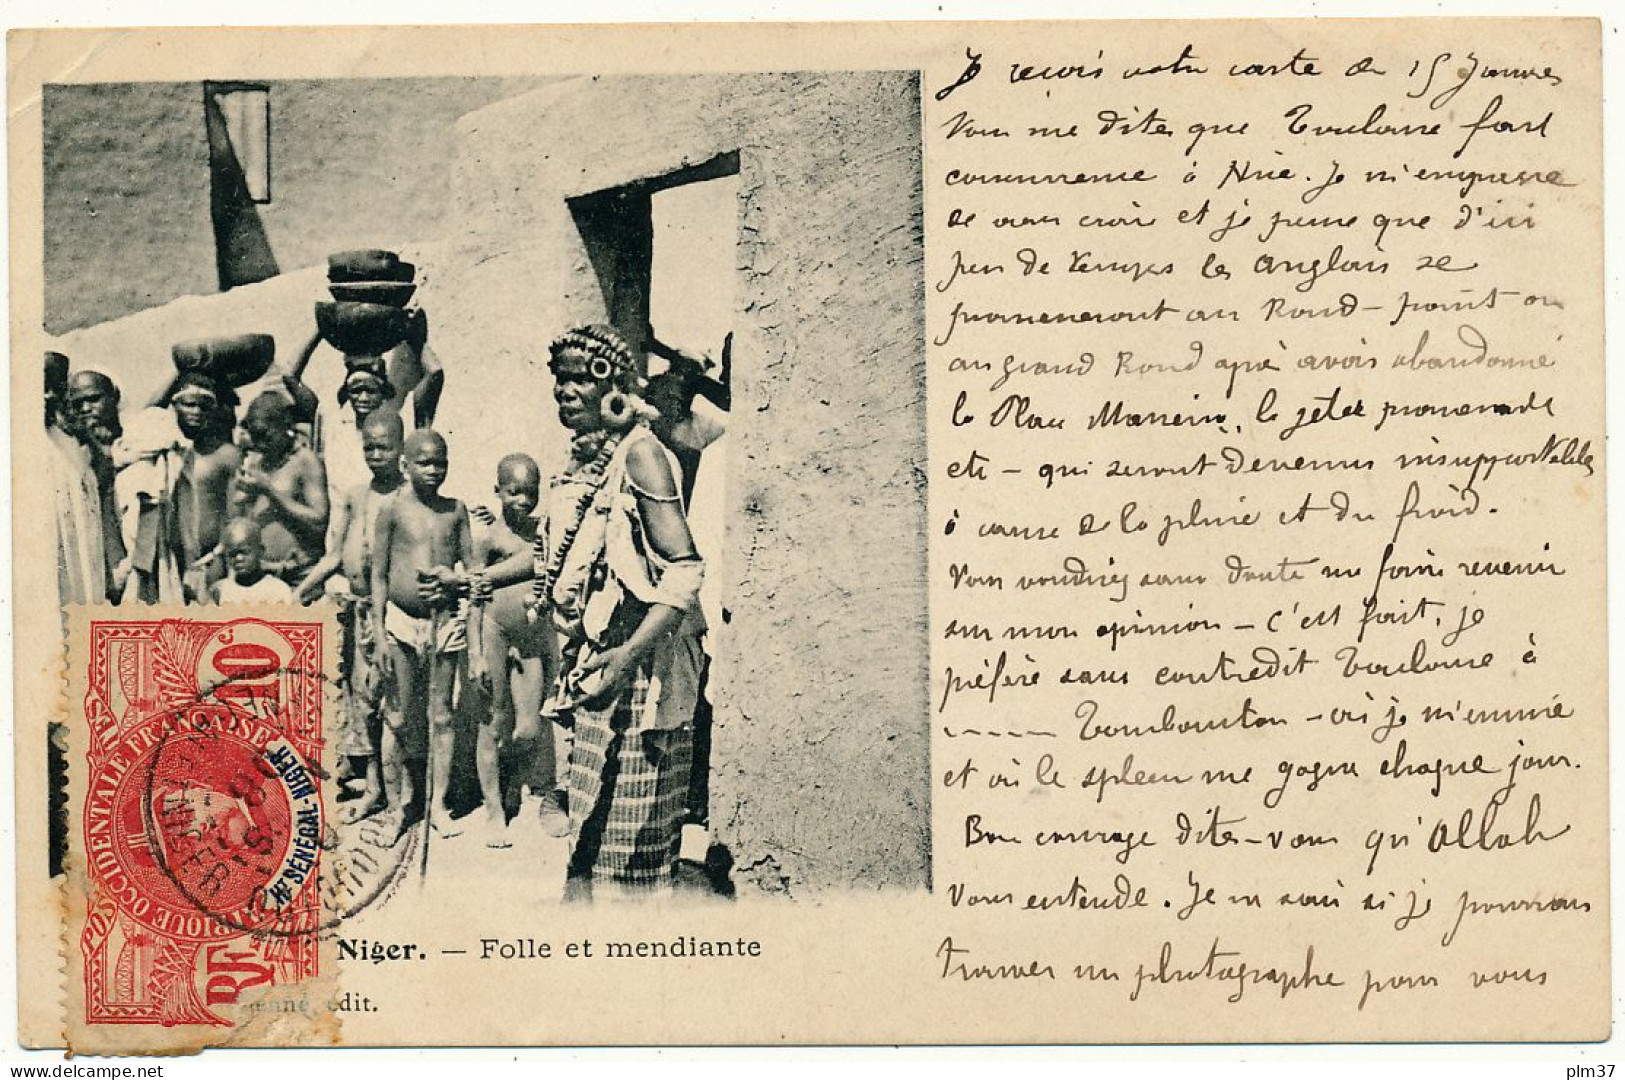 Je reçois votre carte du 15 Janvier
Vous me dites que Toulouse fait
concurrence à Nice. Je m'empresse
de vous croire et je pense que d'ici
peu de temps les Anglais se
promeneront au Rond-point ou
au grand Rond après avoir abandonné
la Place Masséna, la jetée promenade
etc - qui seront devenus insupportables
à cause de la pluie et du froid.
Vous voudriez sans doute me faire revenir
sur mon opinion - c'est fait, je
préfère sans contredit Toulouse à
----- Tombouctou - où je m'ennuie
et où le spleen me gagne chaque jour.
Bon courage dites-vous qu'Allah
vous entende. Je ne sais si je pourrais
trouver un photographe pour vous
Niger. — Folle et mendiante
édit.
10 c
AFRIQUE OCCIDENTALE FRANÇAISE
Ht SÉNÉGAL-NIGER
POSTES
RF
plm37